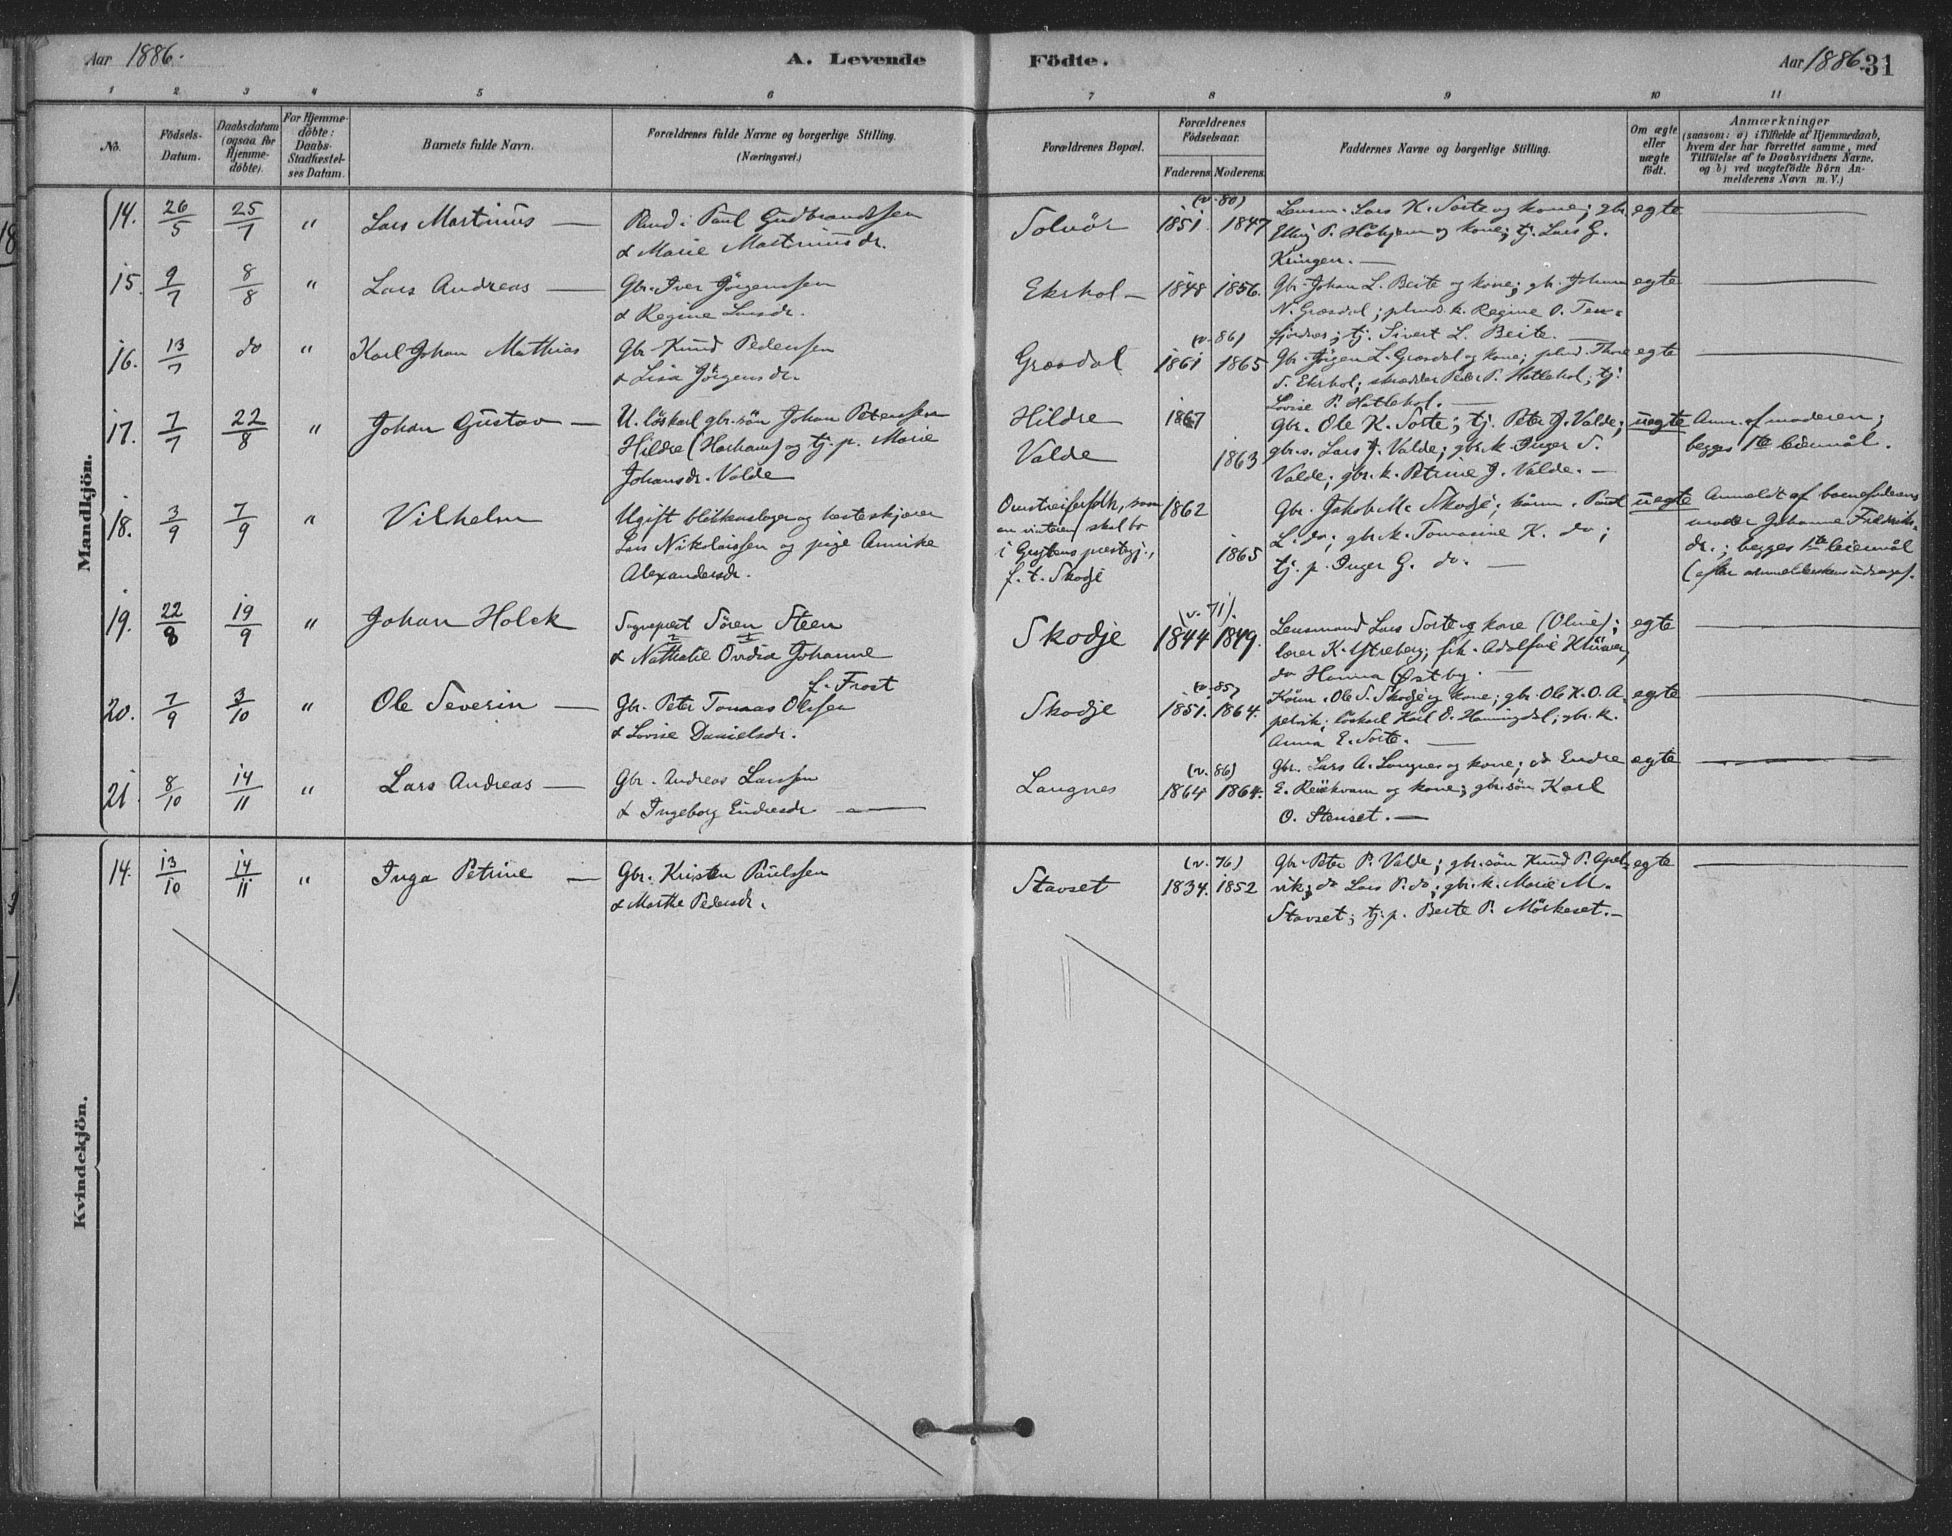 Aar 1886.
A. Levende Födte.
Aar 1886. 31
1 2 3 4 5 6 7 8 9 10 11
No.
Födsels-Datum.
Daabsdatum (ogsaa for Hjemme-döbte).
For Hjemme-döbte: Daabs-Stadfæstel-ses Datum.
Barnets fulde Navn.
Forældrenes fulde Navne og borgerlige Stilling.
(Næringsvei.)
Forældrenes Bopæl.
Forældrenes Födselsaar.
Faderens. Moderens.
Faddernes Navne og borgerlige Stilling.
Om ægte eller uægte födt.
Anmærkninger
(saasom: a) i Tilfælde af Hjemmedaab,
hvem der har forrettet samme, med
Tilföielse af to Daabsvidners Navne,
og b) ved uægtefödte Börn An-
melderens Navn m. V.)
Mandkjön.
14. 26/5 25/7 " Lars Martinus — Plnd. Paul Gudbrandssen
& Marie Martinusdr.
Solnör (v. 80) 1851. 1847
Lensm. Lars K. Sorte og kone; gbr.
Elling P. Håhjem og kone; tj. Lars G.
Kringen. —
egte
15. 9/7 8/8 " Lars Andreas — Gbr. Iver Jörgenssen
& Regine Larsdr.
Ekshol — 1848 1856.
Gbr. Johan L. Beite og kone; gbr. Johan
N. Græsdal; plnds. k. Regine O. Ten-
fjordnes; tj. Sivert L. Beite. —
egte
16. 13/7 do " Karl Johan Mathias Gbr. Knud Pederssen
& Lisa Jörgensdr.
Græsdal (v. 86) 1861 1865
Gbr. Jörgen L. Græsdal og kone; plnd. Thore
S. Ekshol; skrædder Peder P. Hatlehol; tj.
Lovise P. Hatlehol. —
egte
17. 7/7 22/8 " Johan Gustav — U. löskarl gbr.sön Johan Peterssen
Hildre (Harham) og tj. p. Marie
Johansdr. Valde
Hildre 1867
Valde 1863
Gbr. Ole K. Sorte; tj. Peter J. Valde;
gbr.s. Lars J. Valde; gbr.k. Inger S.
Valde; gbr.k. Petrine J. Valde. —
uegte
Anm. af moderen;
begges 1ste leiermål.
18. 3/9 7/9 " Vilhelm Ugift blikkenslager og hesteskjærer
Lars Nikolaissen og pige Annike
Alexandersdr.
Omstreiferfolk, som
om vinteren skal bo
i Grytens præstegj.,
f. t. Skodje
1862
1865
Gbr. Jakob M. Skodje; Paul
L. do; gbr.k. Tomasine K. do;
tj. p. Inger G. do. —
uegte
Anmeldt af barnefaderens
moder Johanne Fredriks-
dr.; begges 1ste leiermål
19. 22/8 19/9 " Johan Holck Sognepræst Sören Steen
& Nathalie Ovidia Johanne
f. Frost
Skodje (v. 71). 1844 1849.
Lensmand Lars Sorte og kone (Oline);
lærer K. Ystreberg; frk. Adolfine Klüwer,
do Hanna Østby. —
egte
20. 7/9 3/10 " Ole Severin — Gbr. Peter Tomas Olssen
& Lovise Danielsdr.
Skodje (v. 85) 1851. 1864.
Ole S. Skodje og kone; gbr. Ole K. O. A-
pelvik; löskarl Karl O. Honningdal; gbr.k.
Anna E. Sorte. —
egte
21. 8/10 14/11 " Lars Andreas — Gbr. Andreas Larssen
& Ingeborg Endresdr. —
Langnes (v. 86) 1864 1864.
Gbr. Lars A. Langnes og kone; do Endre
E. Reiekvam og kone; gbr.sön Karl
O. Stenset. —
egte
Kvindekjön.
14. 13/10 14/11 " Inga Petrine — Gbr. Kristen Paulssen
& Marthe Pedersdr.
Stavset (v. 76) 1834. 1852
Gbr. Peter P. Valde; gbr.sön Knud P. Apel-
vik; do Lars P. do; gbr.k. Marie M.
Stavset; tj.p. Berte P. Mörkeset. —
egte